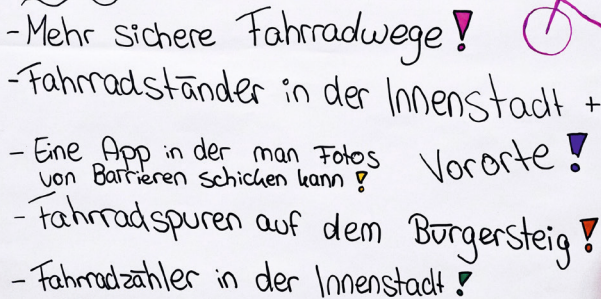 - Mehr sichere Fahrradwege!
- Fahrradständer in der Innenstadt +
Vororte!
- Eine App in der man Fotos
von Barrieren schicken kann!
- Fahrradspuren auf dem Bürgersteig!
- Fahrradzähler in der Innenstadt!